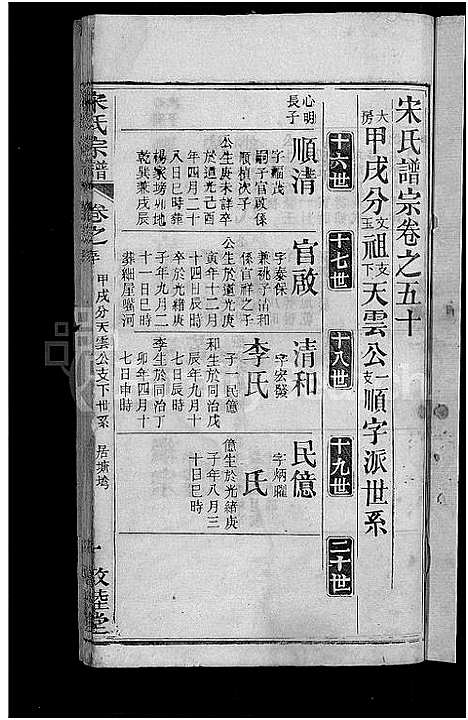 宋氏譜宗卷之五十
大房甲戌分文玉祖支下天雲公一支順字派世系
十六世
十七世
十八世
十九世
二十世
心明長子
順清
字福茂
嗣子官啟係
順楨次子
公生庚未詳卒
於道光己酉
年四月二十
八日巳時葬
楊家塝卯地
乾巽兼戌辰
官啟
字泰保
兼祧子清和
係官祥之子
公生於道光庚
寅年十二月
十四日辰時
卒於光緒庚
子年九月二
十一日巳時
葬細屋嘴河
清和
字宏發
李氏
子一民億
和生於同治戊
辰年九月十
七日辰時
李生於同治丁
卯年四月十
七日申時
民億
字炳曜
氏
億生於光緒庚
子年八月三
十日巳時
宋氏宗譜
卷之
甲戌分天雲公支下世系
居壋塆
一
敦睦堂